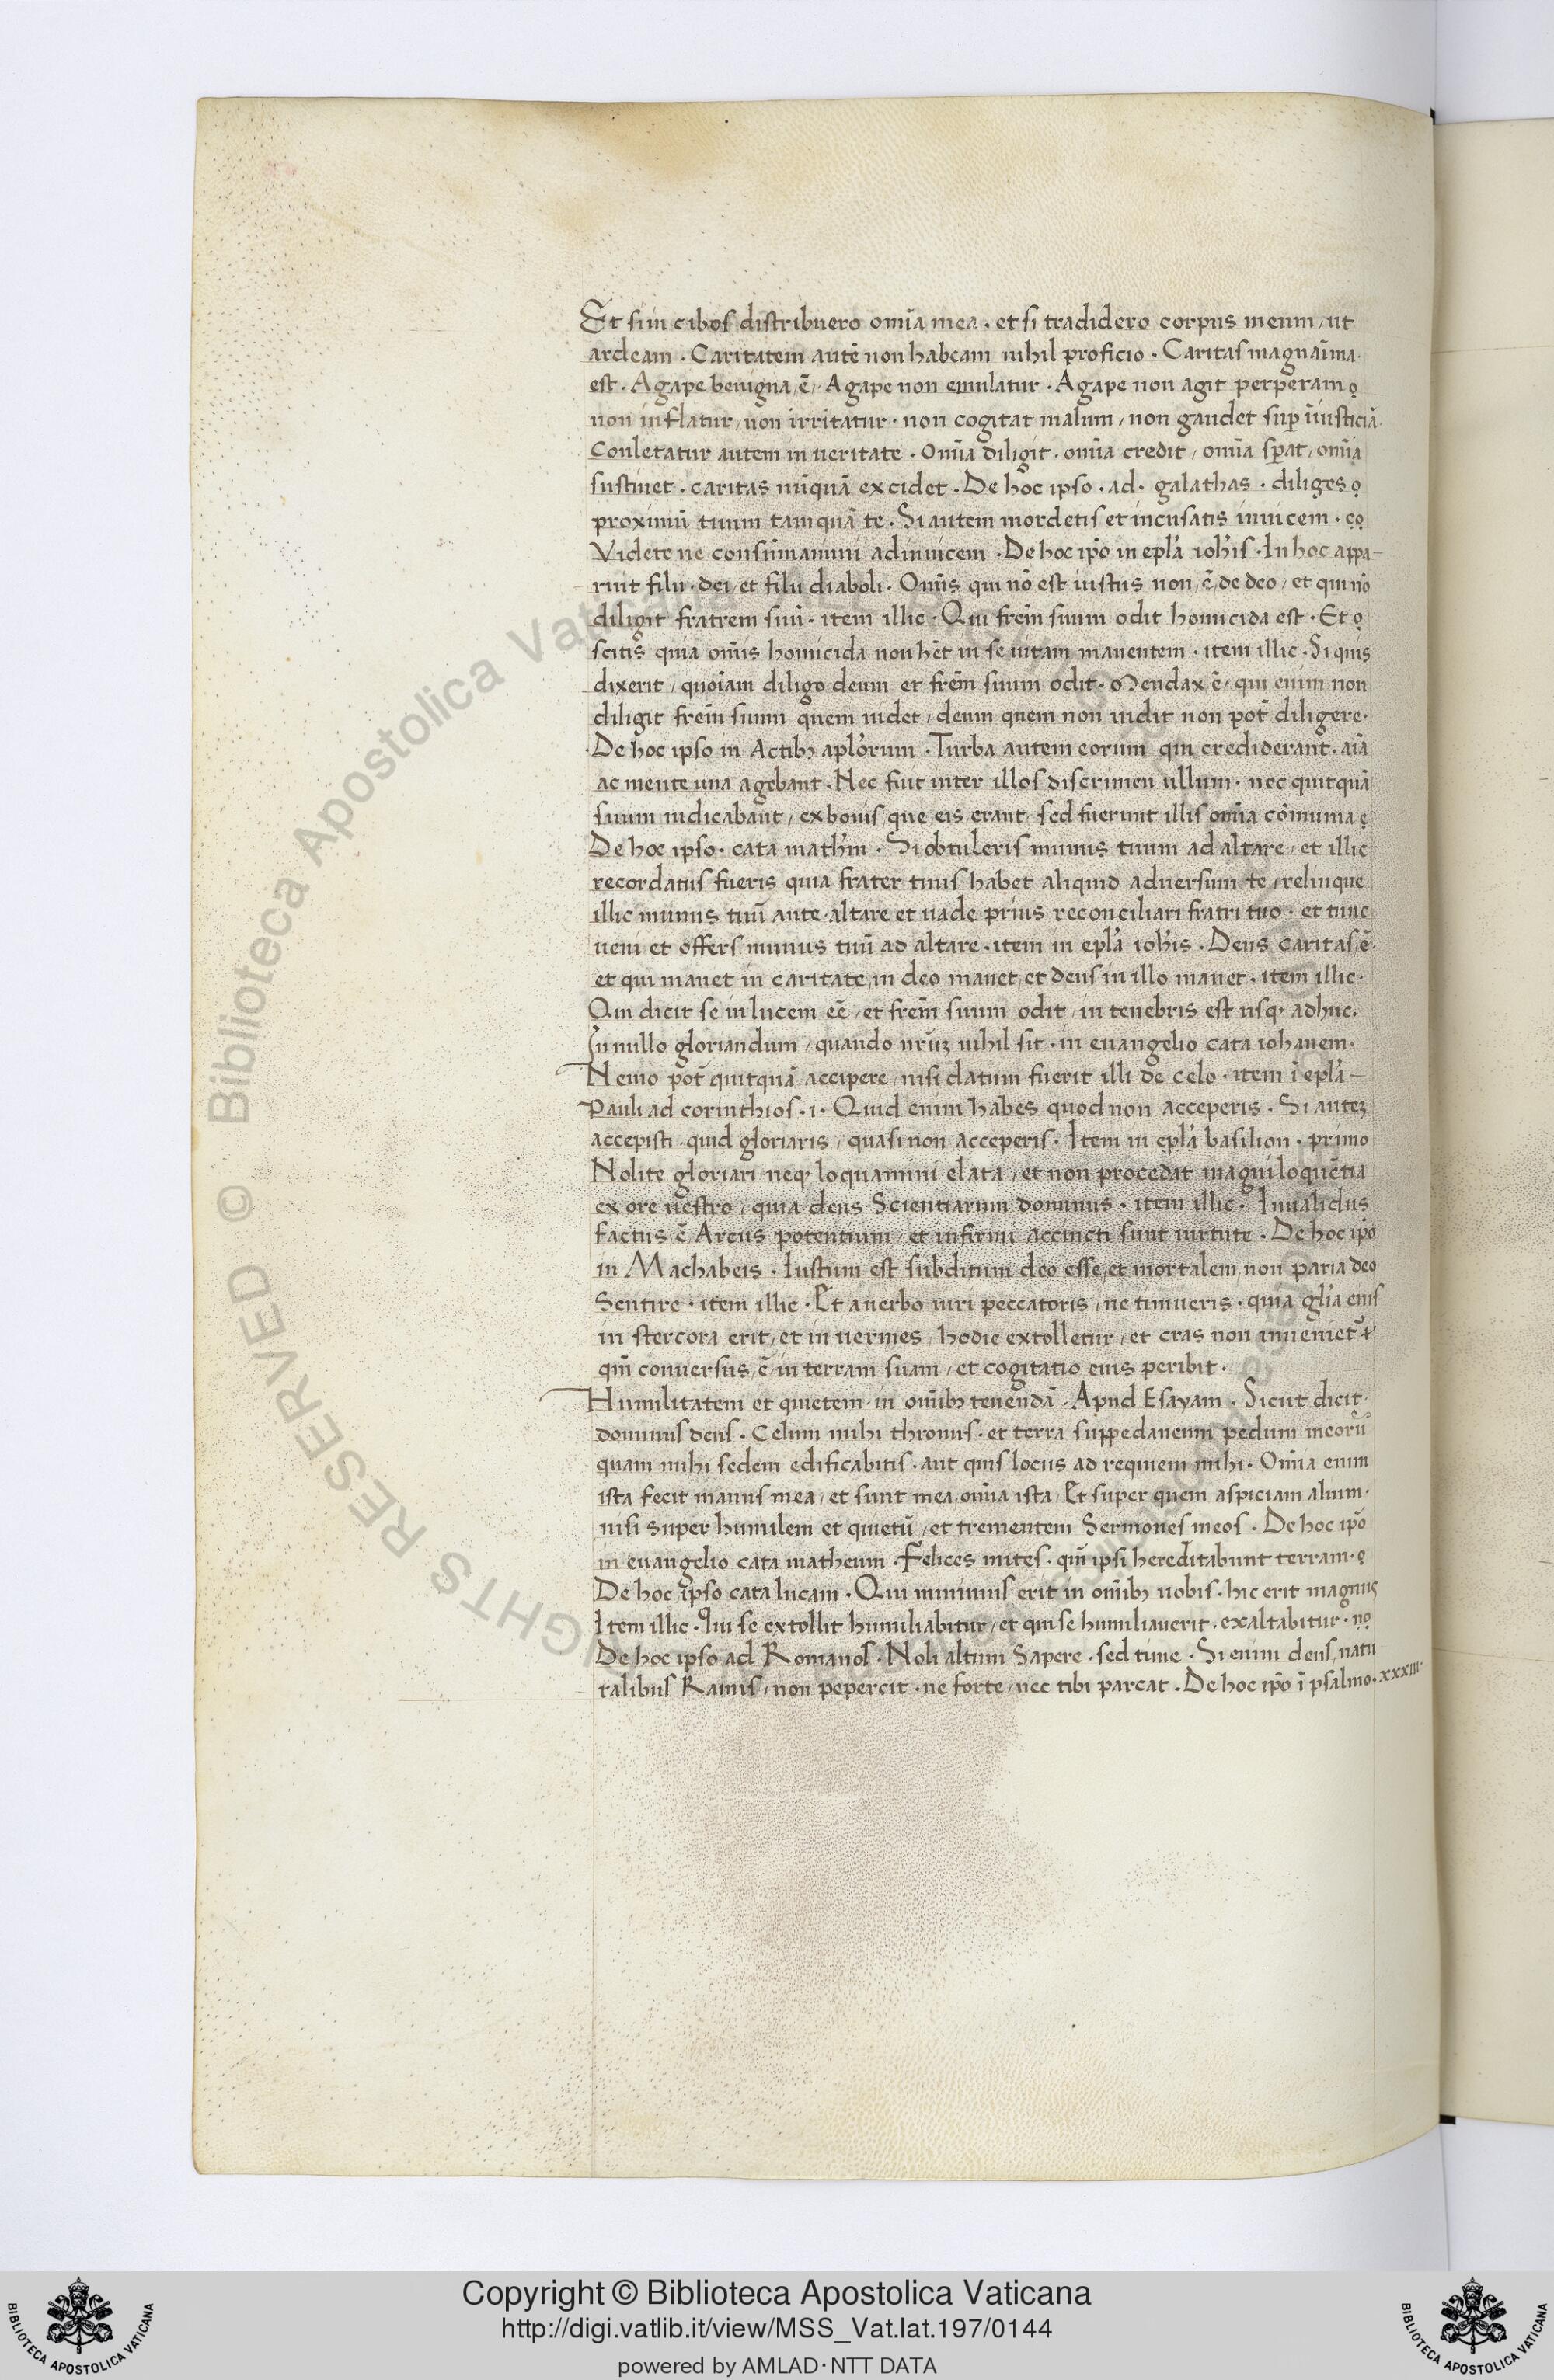 Et si in cibos distribuero om̄ia mea · et si tradidero corpus meum / ut
ardeam · Caritatem autē non habeam nihil proficio · Caritas magnaı̄ma ·
est · Agape benigna ē · Agape non emulatur · Agape non agit perperam
non inflatur / non irritatur · non cogitat malum / non gaudet sup īiusticiā ·
Conletatur autem in ueritate · om̄ia diligit · om̄ia credit / om̄ia sp̄at / om̄ia
sustinet · caritas nūquā excidet · De hoc ipso · ad · galathas · diliges
proximū tuum tamquā te · Si autem mordetis et incusatis inuicem ·
Videte ne consūmamini adinuicem · De hoc ip̄o in epl̄a ioh̄is · In hoc appa-
ruit filii · dei / et filii diaboli · Om̄is qui nō est iustus non ē de deo / et qui nō
diligit fratrem suū · item illic · Qui fr̄em suum odit homicida est · Et
scitis quia om̄is homicida non hēt in se uitam manentem · item illic · Si quis
dixerit / quoīam diligo deum et fr̄em suum odit · Mendax ē / qui enim non
diligit fr̄em suum quem uidet / deum quem non uidit non pot̄ diligere ·
De hoc ipso in Actibꝫ apl̄orum · Turba autem eorum qui crediderant · aīa
ac mente una agebant · Nec fuit inter illos discrimen ullum · nec quitquā
suum iudicabant / ex bonis que eis erant / sed fuerunt illis om̄ia cōmunia
De hoc ipso · cata math̄m · Si obtuleris munus tuum ad altare / et illic
recordatus fueris quia frater tuus habet aliquid aduersum te / relinque
illic munus tuū ante altare et uade prius reconciliari fratri tuo · et tunc
ueni et offers munus tuū ad altare · item in epl̄a ioh̄is · Deus caritas ē ·
et qui manet in caritate / in deo manet / et deus in illo manet · item illic ·
Qui dicit se in lucem eē / et fr̄em suum odit / in tenebris est usqꝫ adhuc.
In nullo gloriandum / quando nr̄uꝫ nihil sit · in euangelio cata iohanem ·
Nemo pot̄ quitquā accipere / nisi datum fuerit illi de celo · item ī epl̄a –
Pauli ad corinthios · i · Quid enim habes quod non acceperis · Si auteꝫ
accepisti · quid gloriaris / quasi non acceperis · Item in epl̄a basilion · primo
Nolite gloriari neqꝫ loquamini elata / et non procedat magniloquētia
ex ore uestro / quia deus Scientiarum dominus · item illic · Inualidus
factus ē Arcus potentium / et infirmi accincti sunt uirtute · De hoc ip̄o
in Machabeis · Iustum est subditum deo esse / et mortalem / non paria deo
Sentire · item illic · Et a uerbo uiri peccatoris / ne timueris · quia gl̄ia eius
in stercora erit / et in uermes / hodie extolletur / et cras non inueniet᷑
qm̄ conuersus ē in terram suam / et cogitatio eius peribit ·
Humilitatem et quietem · in om̄ibꝫ tenendā · Apud Esayam · Sicut dicit ·
dominus deus · Celum mihi thronus · et terra suppedaneum pedum meorū
quam mihi sedem edificabitis · aut quis locus ad requiem mihi · Om̄ia enim
ista fecit manus mea / et sunt mea / om̄ia ista / Et super quem aspiciam alium ·
nisi super humilem et quietū / et trementem Sermones meos · De hoc ip̄o
in euangelio cata matheum · Felices mites · qm̄ ipsi hereditabunt terram ·
De hoc ipso cata lucam · Qui minimus erit in om̄ibꝫ uobis · hic erit magnus
Item illic · Qui se extollit humiliabitur / et qui se humiliauerit · exaltabitur ·
De hoc ipso ad Romanos · Noli altum Sapere · sed time · Si enim deus / natu
ralibus Ramis / non pepercit · ne forte / nec tibi parcat · De hoc ip̄o ī psalmo · xxxiii ·
Biblioteca Apostolica Vaticana
RIGHTS RESERVED ©
Copyright © Biblioteca Apostolica Vaticana
http://digi.vatlib.it/view/MSS_Vat.lat.197/0144
powered by AMLAD·NTT DATA
BIBLIOTECA APOSTOLICA VATICANA
BIBLIOTECA APOSTOLICA VATICANA